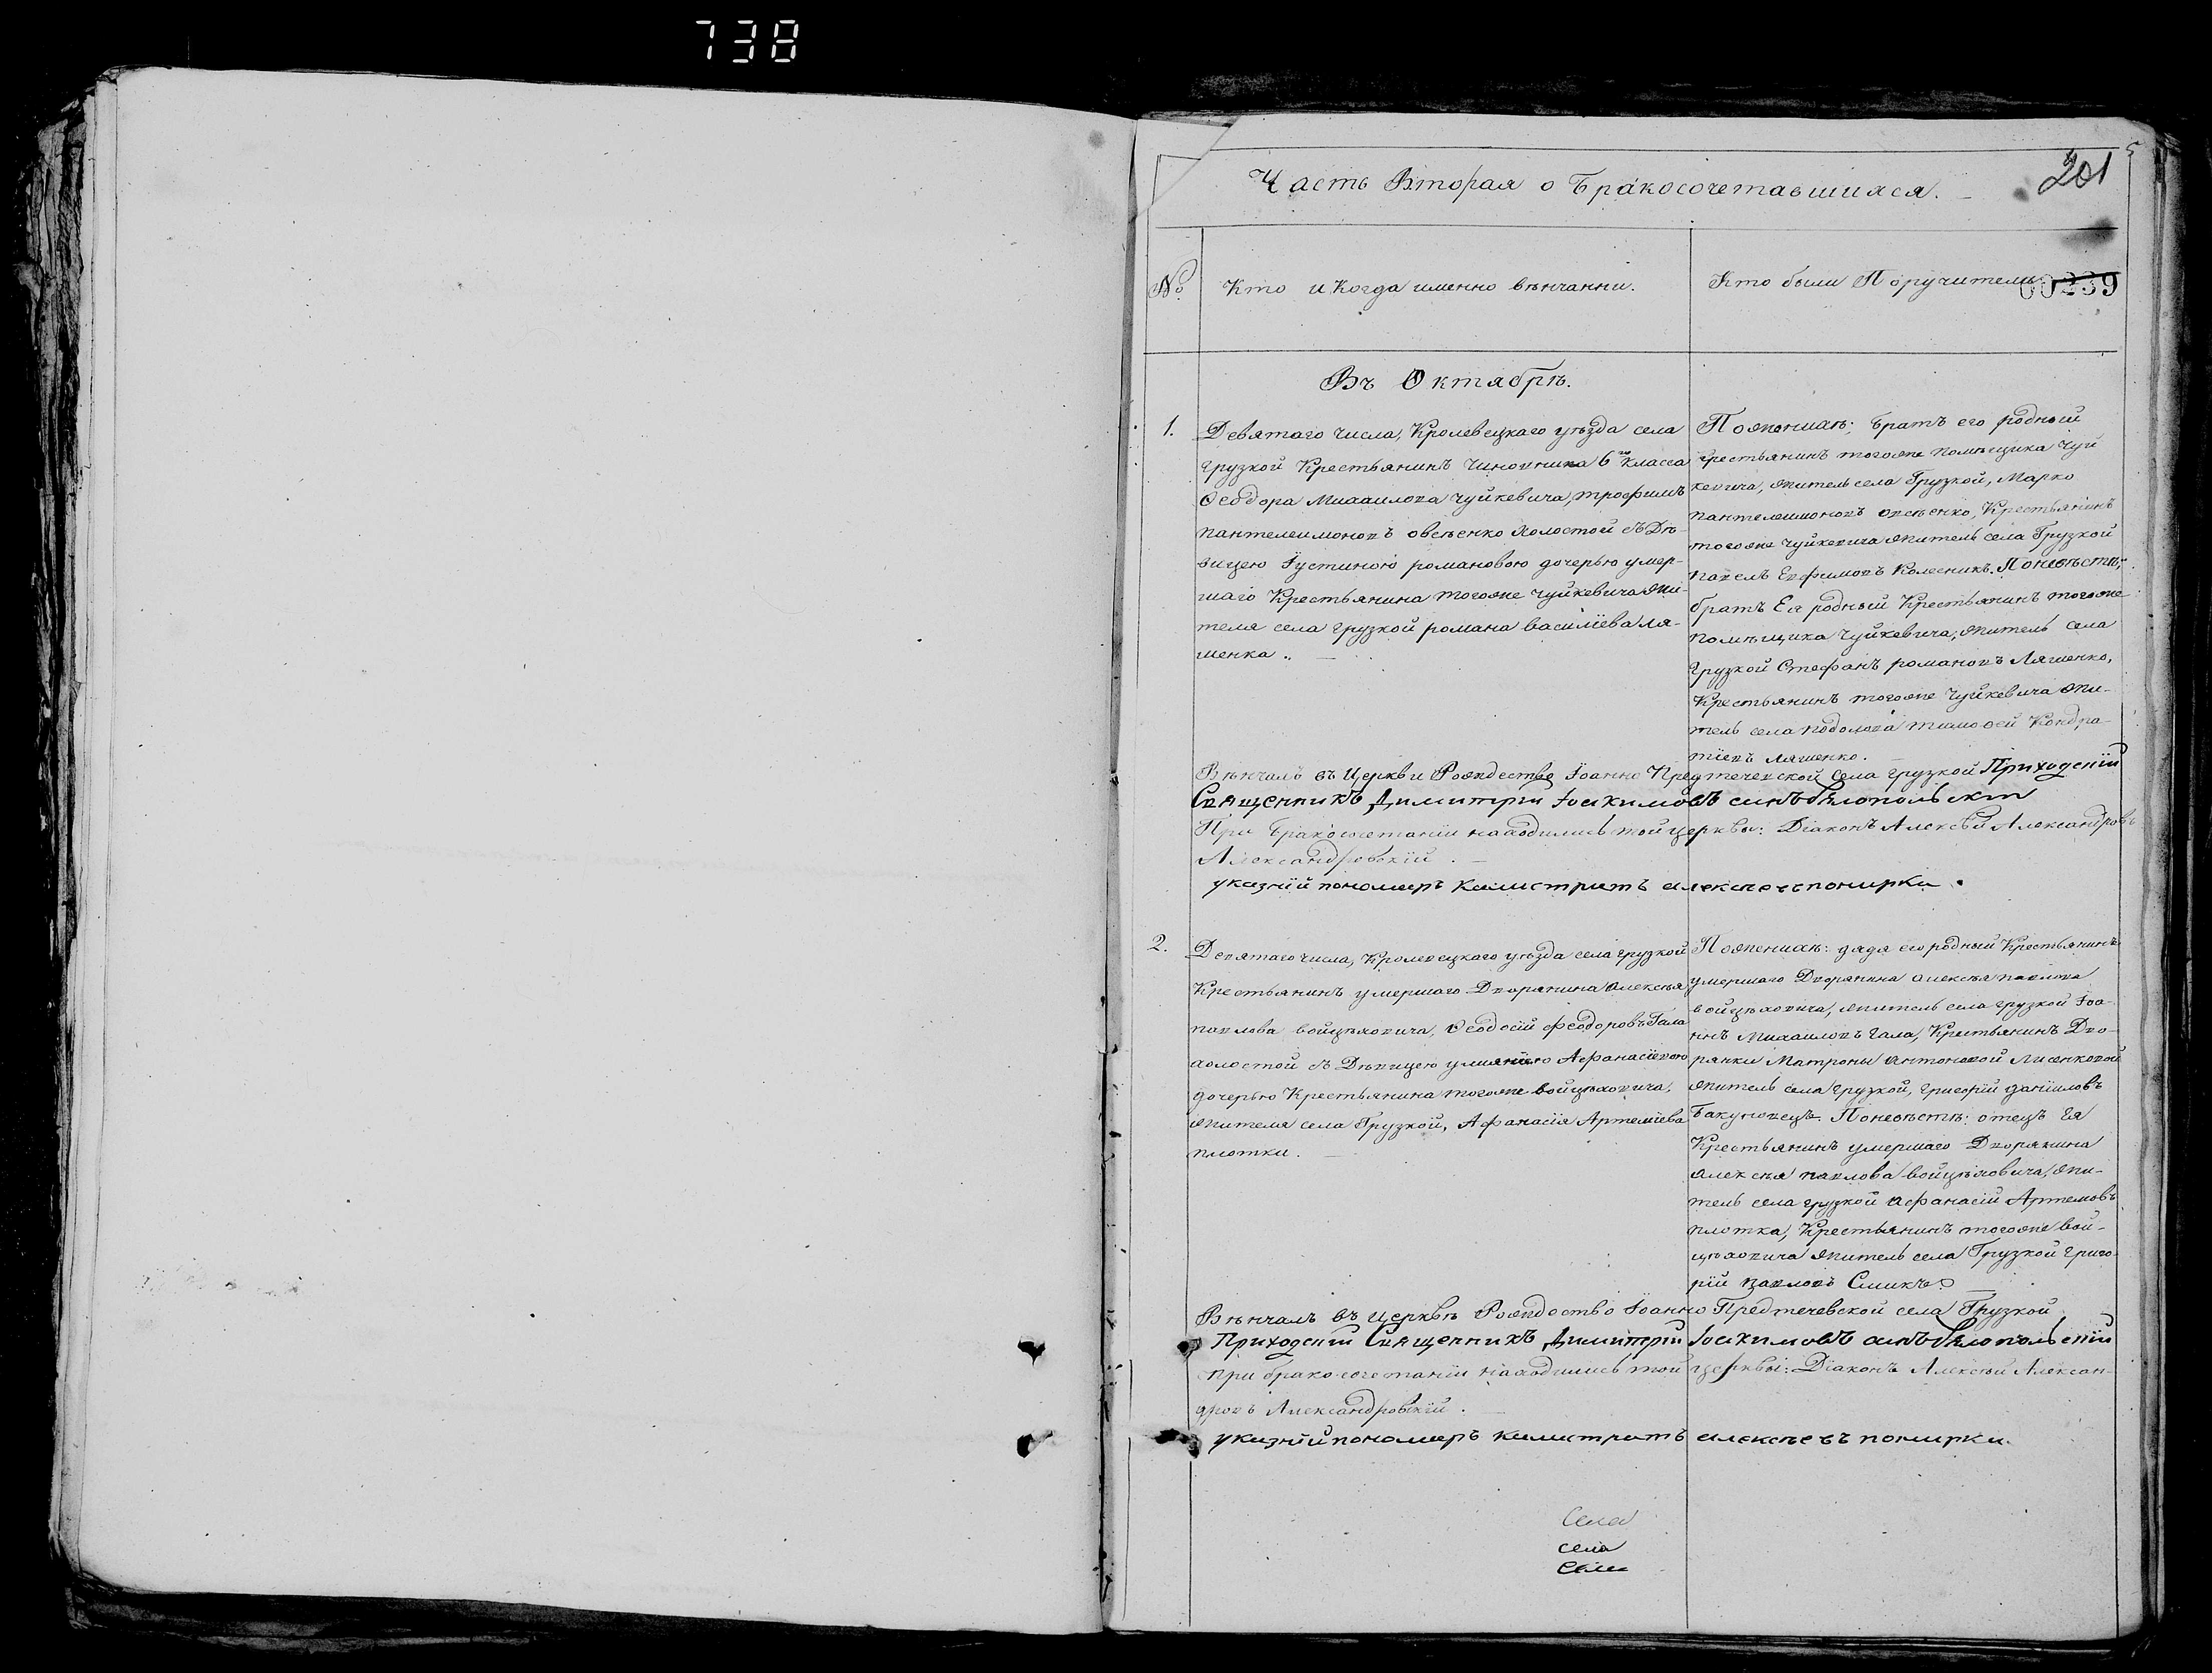 738
201
Часть Вторая о Бракосочетавшихся.
№
Кто и Когда именно вѣнчанни.
Кто были Поручители
00239
Въ Октябрѣ.
1.
Девятаго числа, Кролевецкаго уѣзда села
Грузкой Крестьянинъ Чиновника 6го Класса
Ѳеодора Михаилова Чуйкевича, трофимъ
пантелеимоновъ овсѣенко холостой съ Дѣ-
вицею Іустиною романовою дочерью умер-
шаго Крестьянина тогоже Чуйкевича жи-
теля села Грузкой романа василіева ля-
шенка.
Пожениху; братъ его родный
Крестьянинъ тогоже помѣщика Чуй
кевича, житель села Грузкой, Марко
пантелеимоновъ овсѣенко, Крестьянинъ
тогоже Чуйкевича житель села Грузкой
павелъ Евфимовъ Колесникъ. Поневѣстѣ;
братъ Ея родный Крестьянинъ тогоже
помѣщика Чуйкевича, житель села
Грузкой Стефанъ романовъ Ляшенко,
Крестьянинъ тогоже Чуйкевича жи-
тель села подолова тимоѳей Кондра-
тіевъ ляшенко.
Вѣнчалъ въ Церкви Рождество Іоанно Предтечевской села Грузкой Приходскій
Священникъ Димитрій Іоакимовъ синъ Бѣлопольскій
При Бракосочетаніи находились той церквы: Діаконъ Алексѣй Александровъ
Александровскій.
указній пономаръ Калистратъ алексѣевъ
2.
Девятаго числа, Кролевецкаго уѣзда села Грузкой
Крестьянинъ умершаго Дворянина алексѣя
павлова войцѣховича, Ѳеодосій феодоровъ Гала
холостой съ Дѣвицею улияніею Афанасіевою
дочерью Крестьянина тогоже войцѣховича,
жителя села Грузкой, Афанасія Артеміева
плотки.
Пожениху: дядя его родный Крестьянинъ
умершаго Дворянина алексѣя павлова
войцѣховича, житель села Грузкой Іоа-
ннъ Михаиловъ Гала, Крестьянинъ Дво-
рянки Матроны Антоновой Лисенковой
житель села Грузкой, Григорій даніиловъ
Бакуновецъ. Поневѣстѣ: отецъ Ея
Крестьянинъ умершаго Дворянина
алексѣя павлова войцѣховича, жи-
тель села Грузкой афанасій Артемовъ
плотка, Крестьянинъ тогоже вой-
цѣховича житель села Грузкой Григо-
рій павловъ Смикъ
Вѣнчалъ въ Церквѣ Рождество Іоанно Предтечевской села Грузкой
Приходскій Священникъ Димитрій Іоакимовъ синъ Бѣлопольскій
При бракосочетаніи находились той церквы: Діаконъ Алексѣй Алексан-
дровъ Александровскій.
указній пономаръ калистратъ алексѣевъ
Села
села